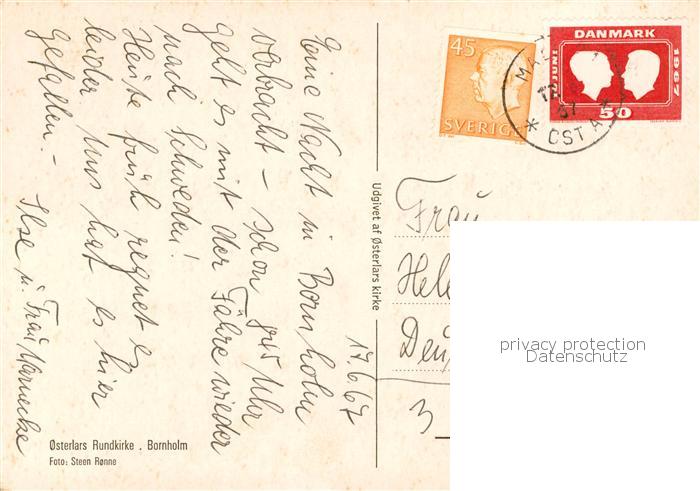 45
SVERIGE
DANMARK
JUNI
1967
50
MAL
12
67
ÖSTA
17.6.67
Eine Nacht in Bornholm
verbracht – schon 845 Uhr
geht es mit der Fähre wieder
nach Schweden!
Heute früh regnet es
leider. Uns hat es hier
gefallen. –
Ilse u. Frau Warnecke
Udgivet af Østerlars kirke
Frau
Hele
Deu
3
privacy protection
Datenschutz
Østerlars Rundkirke . Bornholm
Foto: Steen Rønne